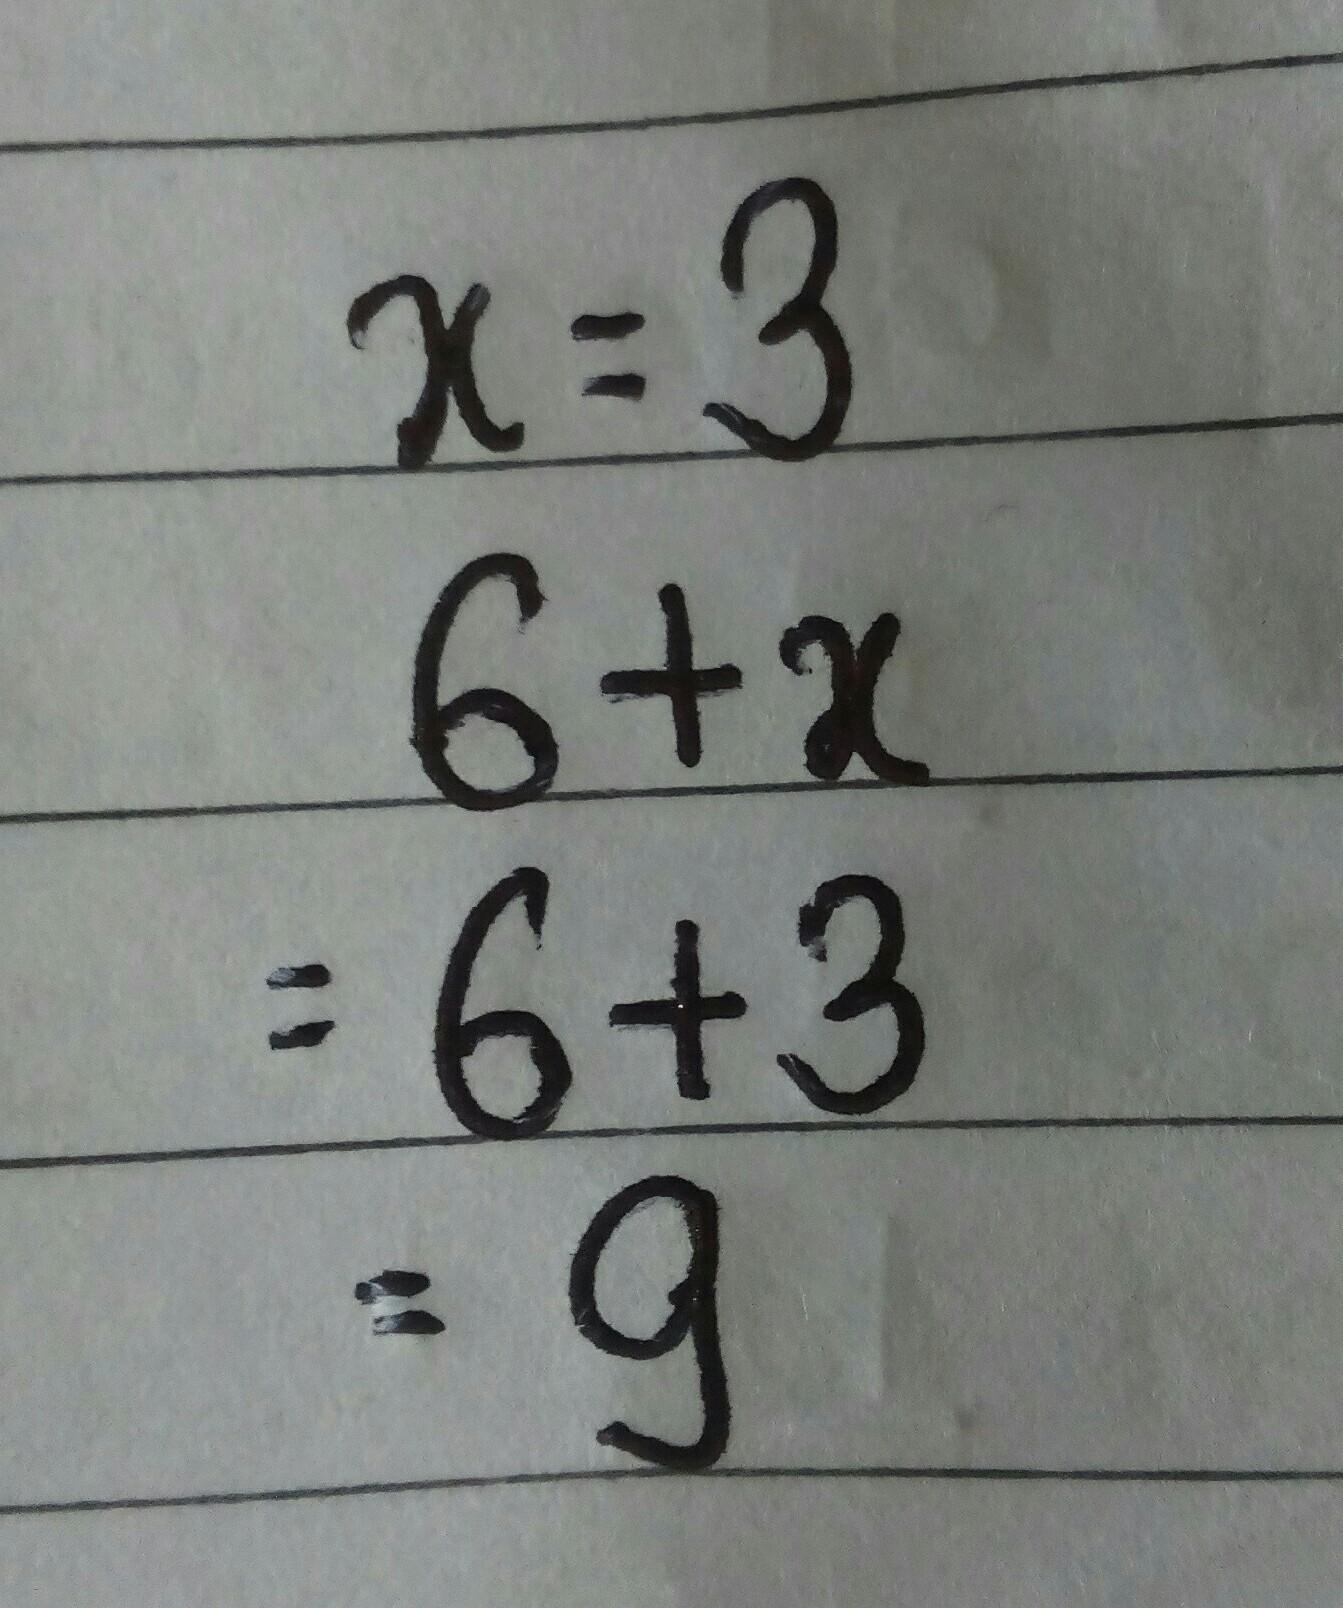 x = 3
6 + x
= 6 + 3
= 9